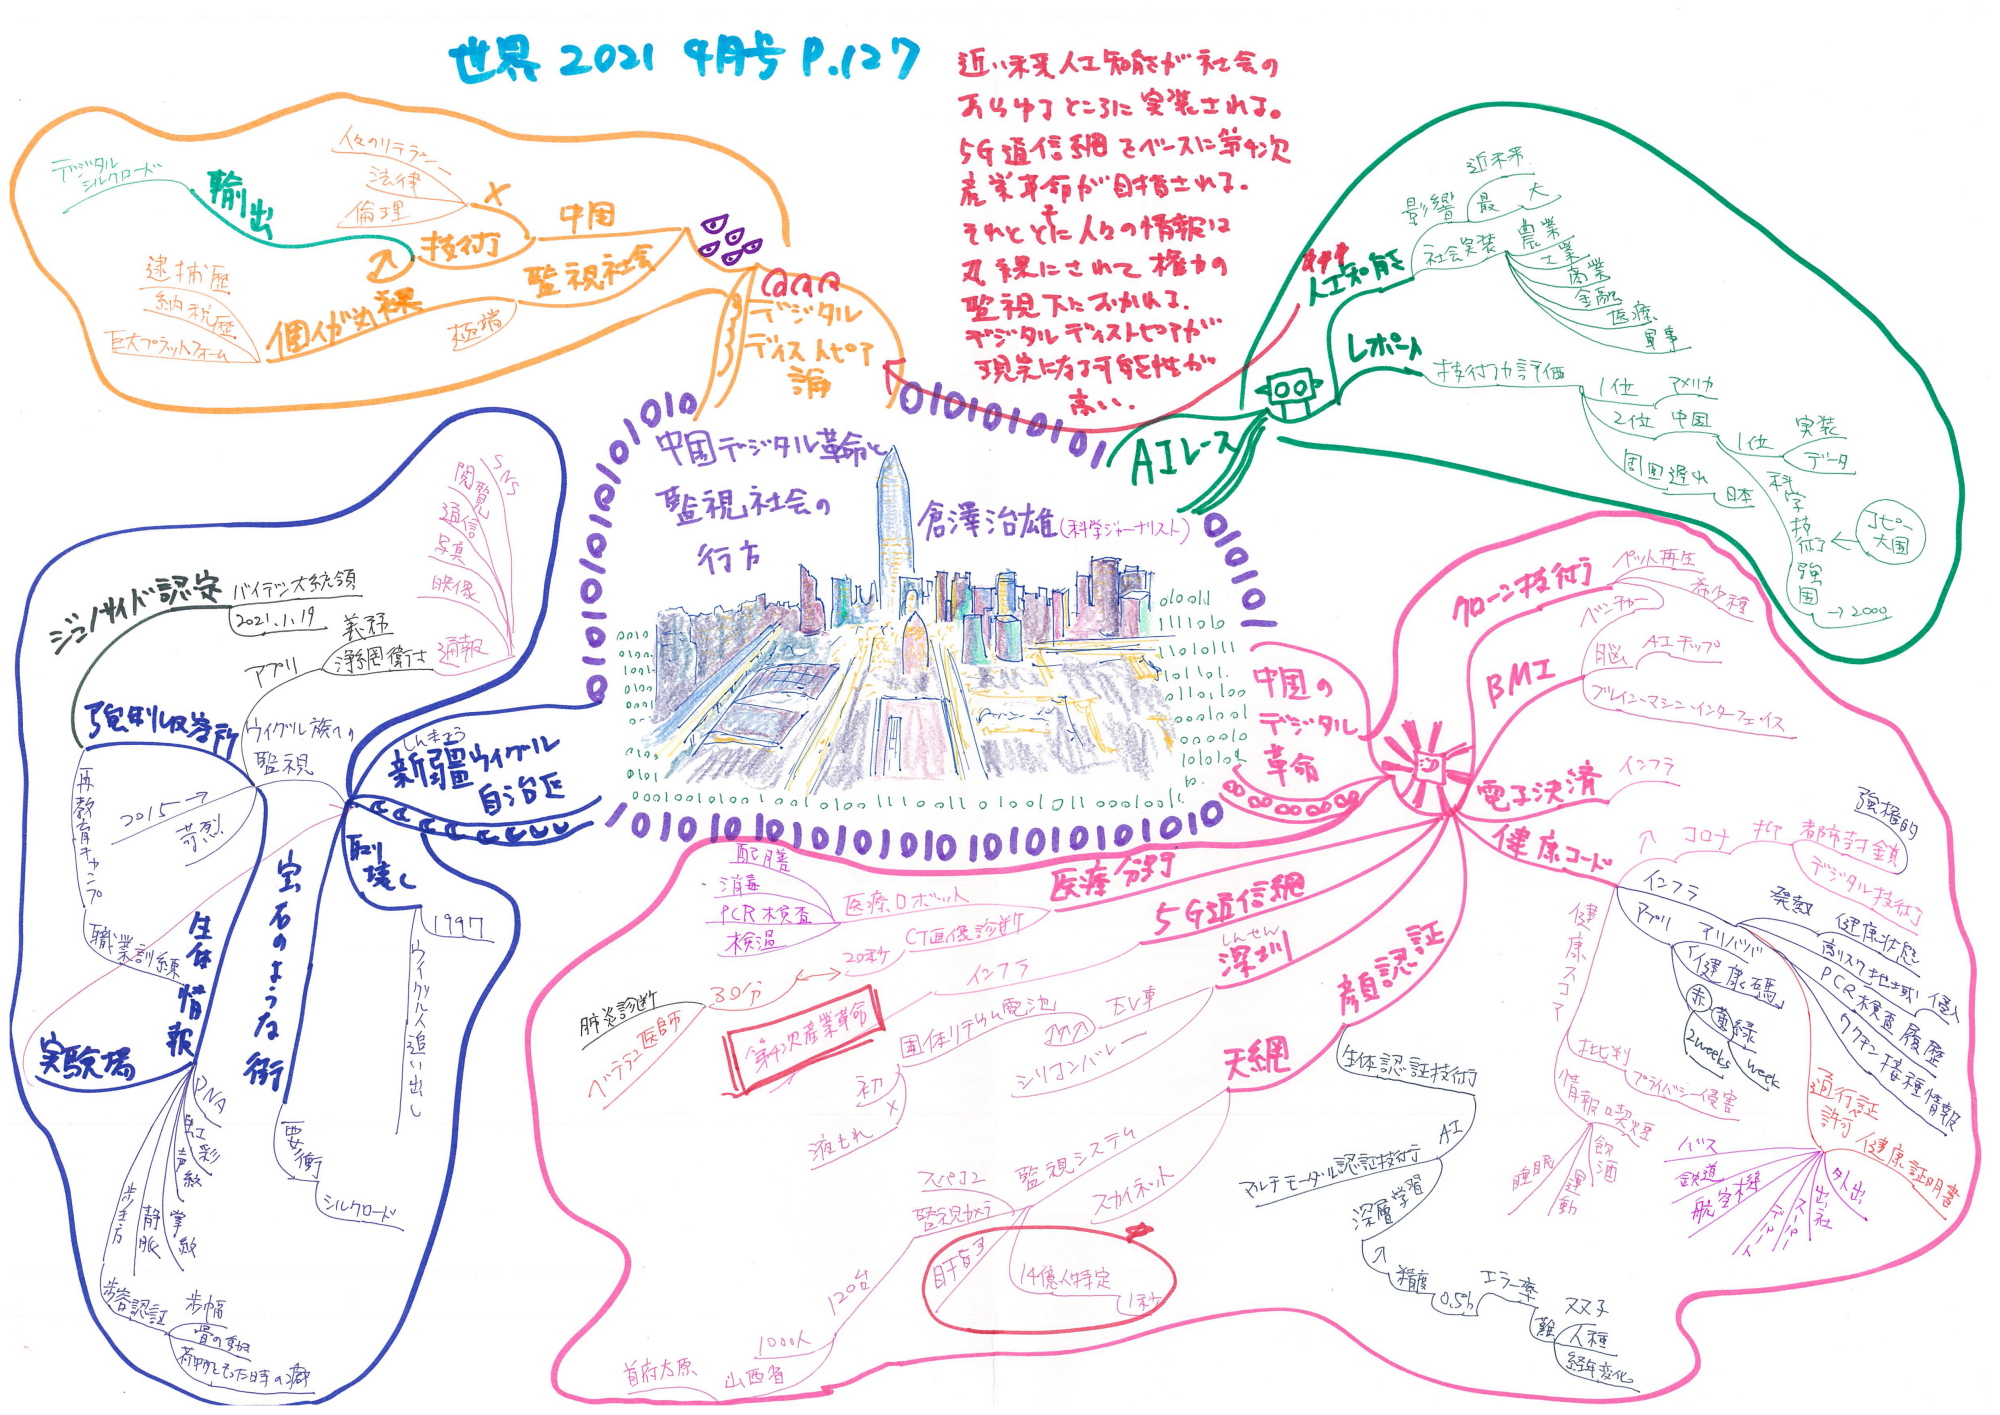 世界 2021 4月号 P.127
近い未来人工知能が社会の
あらゆるところに実装される。
5G通信網をベースに第4次
産業革命が目指される。
それとともに人々の情報は
丸裸にされて権力の
監視下におかれる。
デジタルディストピアが
現実になる可能性が
高い.
中国デジタル革命と
監視社会の
行方
倉澤治雄(科学ジャーナリスト)
デジタル
ディストピア
論
中国
技術
×
人々のリテラシー
法律
倫理
輸出
デジタル
シルクロード
監視社会
極端
個人が丸裸
逮捕歴
納税歴
巨大プラットフォーム
AIレース
人工知能
影響
最大
近未来
社会実装
農業
工業
商業
金融
医療
軍事
レポート
技術力評価
1位
アメリカ
2位
中国
1位
実装
データ
周回遅れ
日本
科学技術強国
→2000
コピー
大国
中国の
デジタル
革命
クローン技術
ペット再生
希少種
BMI
ベンチャー
脳
AIチップ
ブレイン・マシン・インターフェイス
電子決済
インフラ
健康コード
コロナ
抑
都市封鎖
強権的
デジタル技術
インフラ
アプリ
アリババ
健康碼
赤
黄
緑
2weeks
week
発熱
健康状態
高リスク地域
PCR検査履歴
ワクチン接種情報
通行証
許可
健康証明書
バス
鉄道
航空機
デパート
スーパー
出社
外出
健康スコア
批判
プライバシー侵害
情報
喫煙
飲酒
運動
睡眠
医療分野
医療ロボット
配膳
消毒
PCR検査
検温
CT画像診断
20秒
30分
肺炎診断
ベテラン医師
5G通信網
インフラ
第4次産業革命
しんせん
深圳
EV車
固体リチウム電池
初
×
液もれ
シリコンバレー
顔認証
生体認証技術
AI
マルチモーダル認証技術
深層学習
精度
エラー率
難
双子
人種
経年変化
天網
監視システム
スカイネット
スパコン
監視カメラ
120台
1000人
山西省
首府太原
14億人特定
1秒
しんきょう
新疆ウイグル
自治区
ウイグル族への
監視
アプリ
浄網衛士
義務
SNS
閲覧
通信
写真
映像
通報
2015→
苛烈
強制収容所
ジェノサイド認定
バイデン大統領
2021.1.19
再教育キャンプ
職業訓練
生体情報
DNA
虹彩
声紋
掌紋
静脈
歩き方
歩容認証
歩幅
骨の動き
荷物をもった時の癖
実験場
宝石のような街
要衝
シルクロード
取り壊し
1997
ウイグル人追い出し